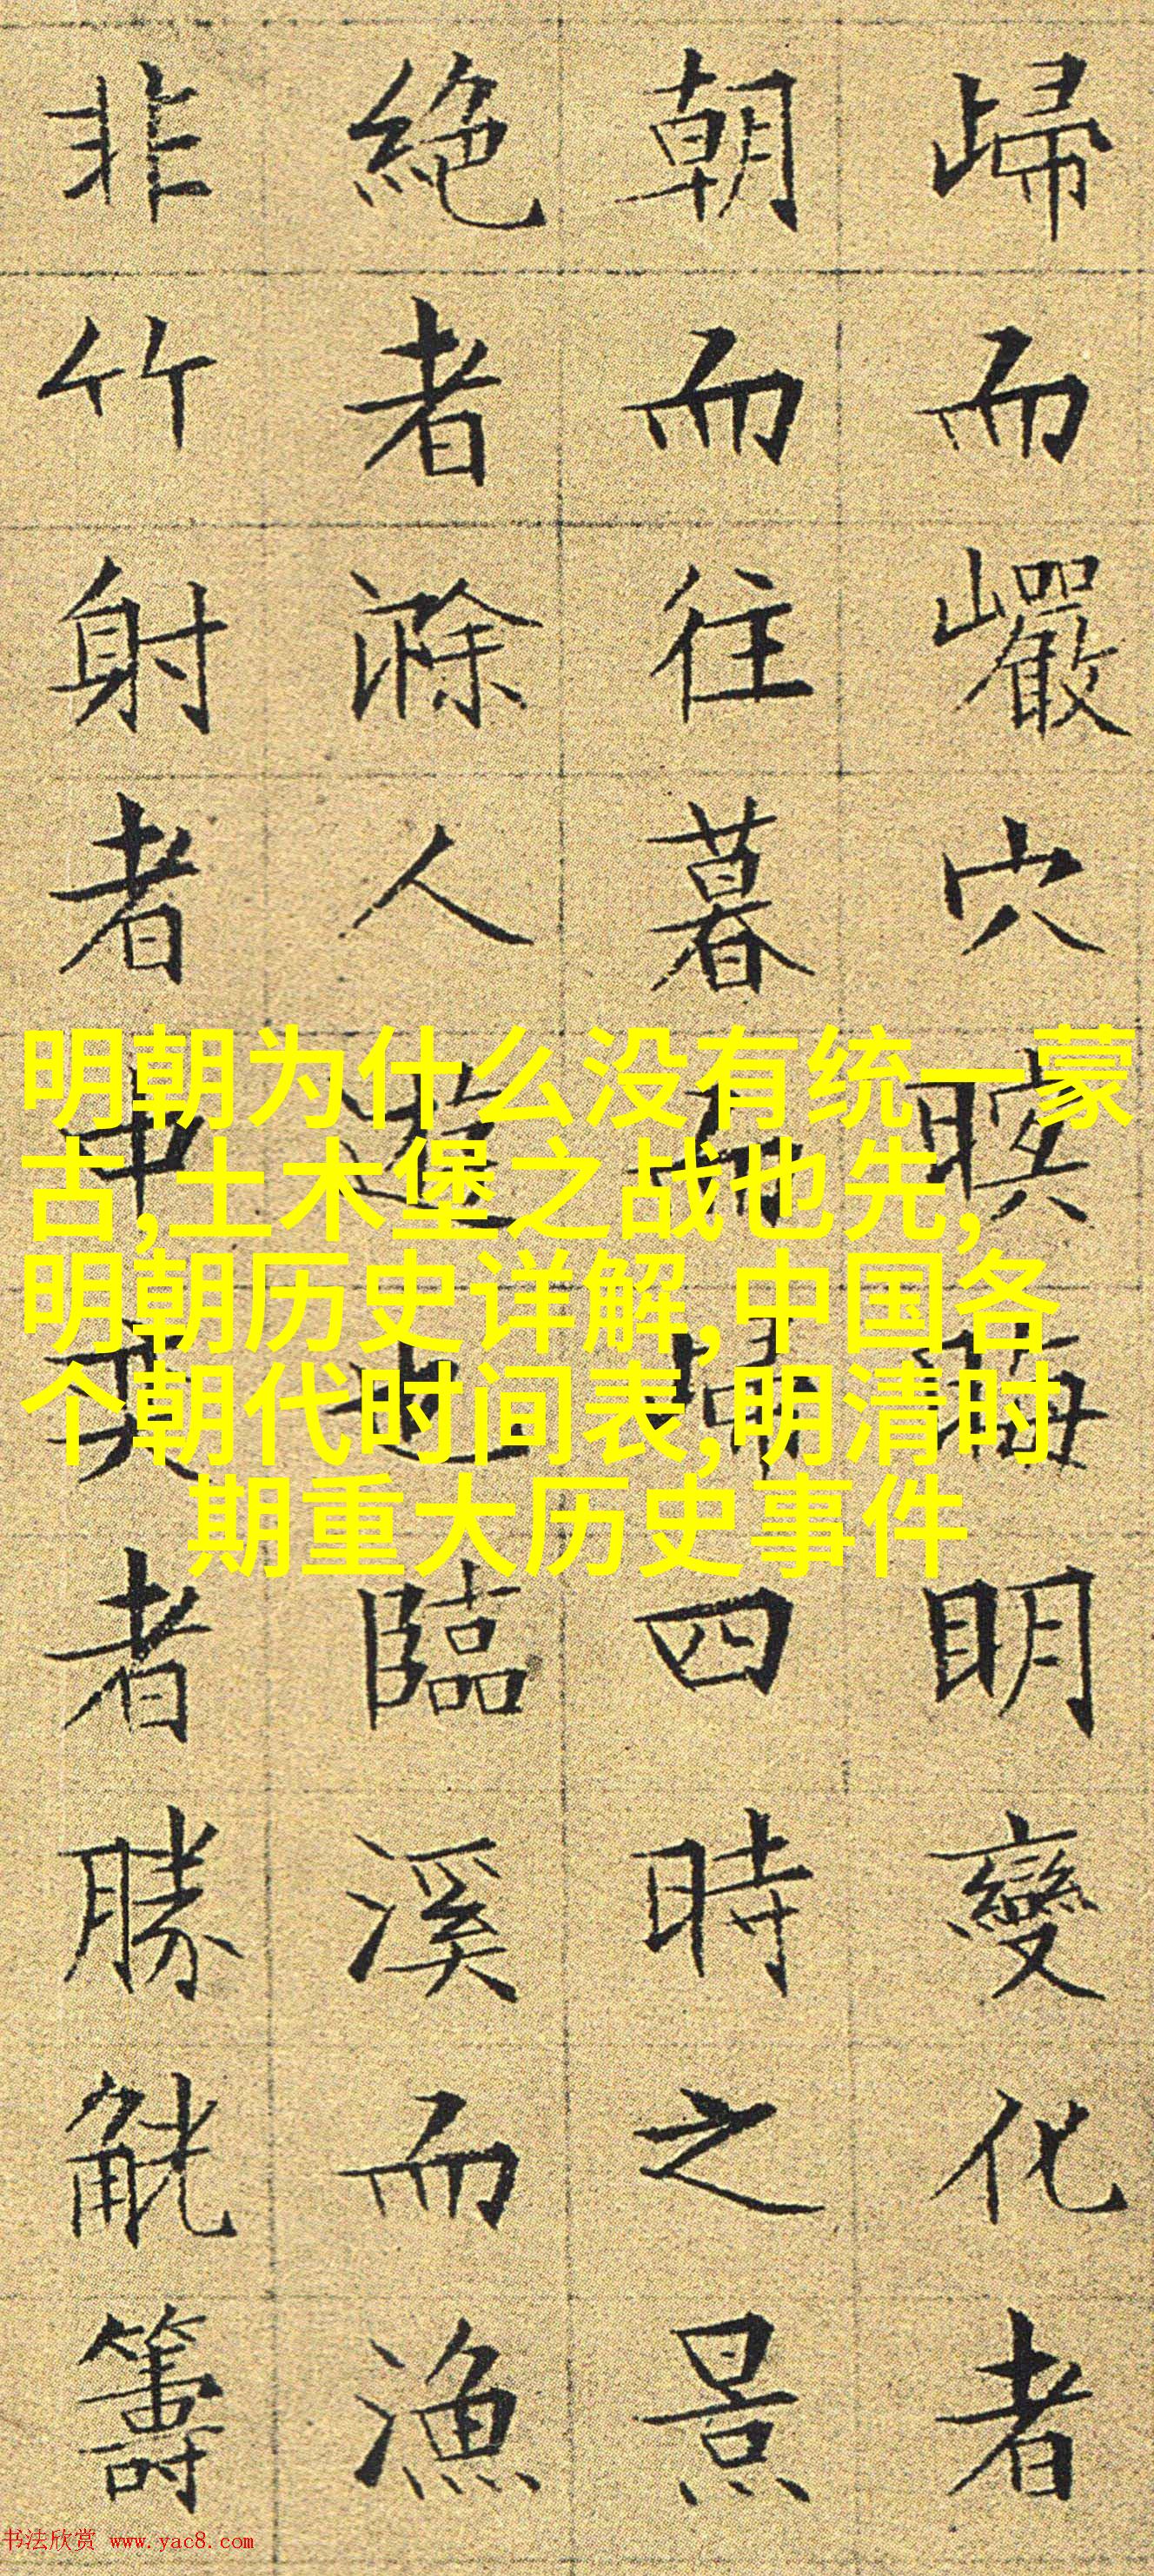 歸而巖穴暝晦明變化者
朝而往暮而歸四時之景
絕者滁人遊也臨溪而漁
非竹射者中奕者勝觥籌
明朝为什么没有统一蒙
古,土木堡之战也先,
明朝历史详解,中国各
个朝代时间表,明清时
期重大历史事件
书法欣赏 www.yac8.com